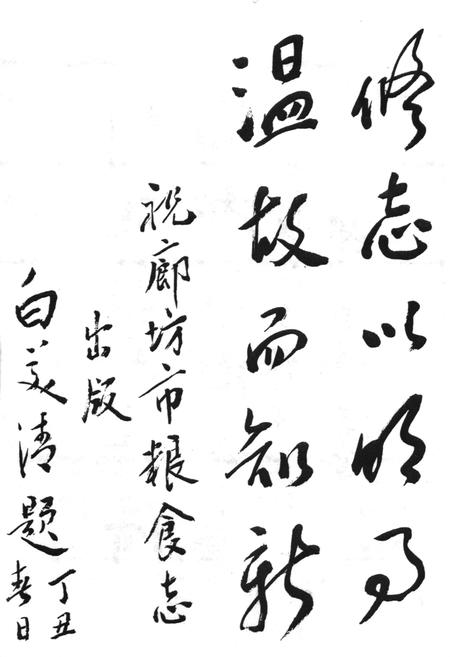 修志以明局
温故而知新
祝廊坊市粮食志
出版
白美清题
丁丑
春日